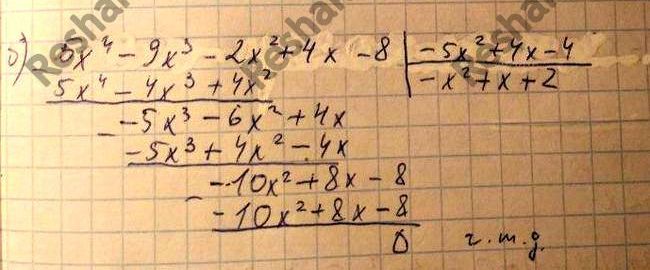 б) 5x⁴ - 9x³ - 2x² + 4x - 8 | -5x² + 4x - 4
5x⁴ - 4x³ + 4x² | -x² + x + 2
- -5x³ - 6x² + 4x
-5x³ + 4x² - 4x
- -10x² + 8x - 8
-10x² + 8x - 8
0 ч.т.д.
Reshak
Reshak
Reshak